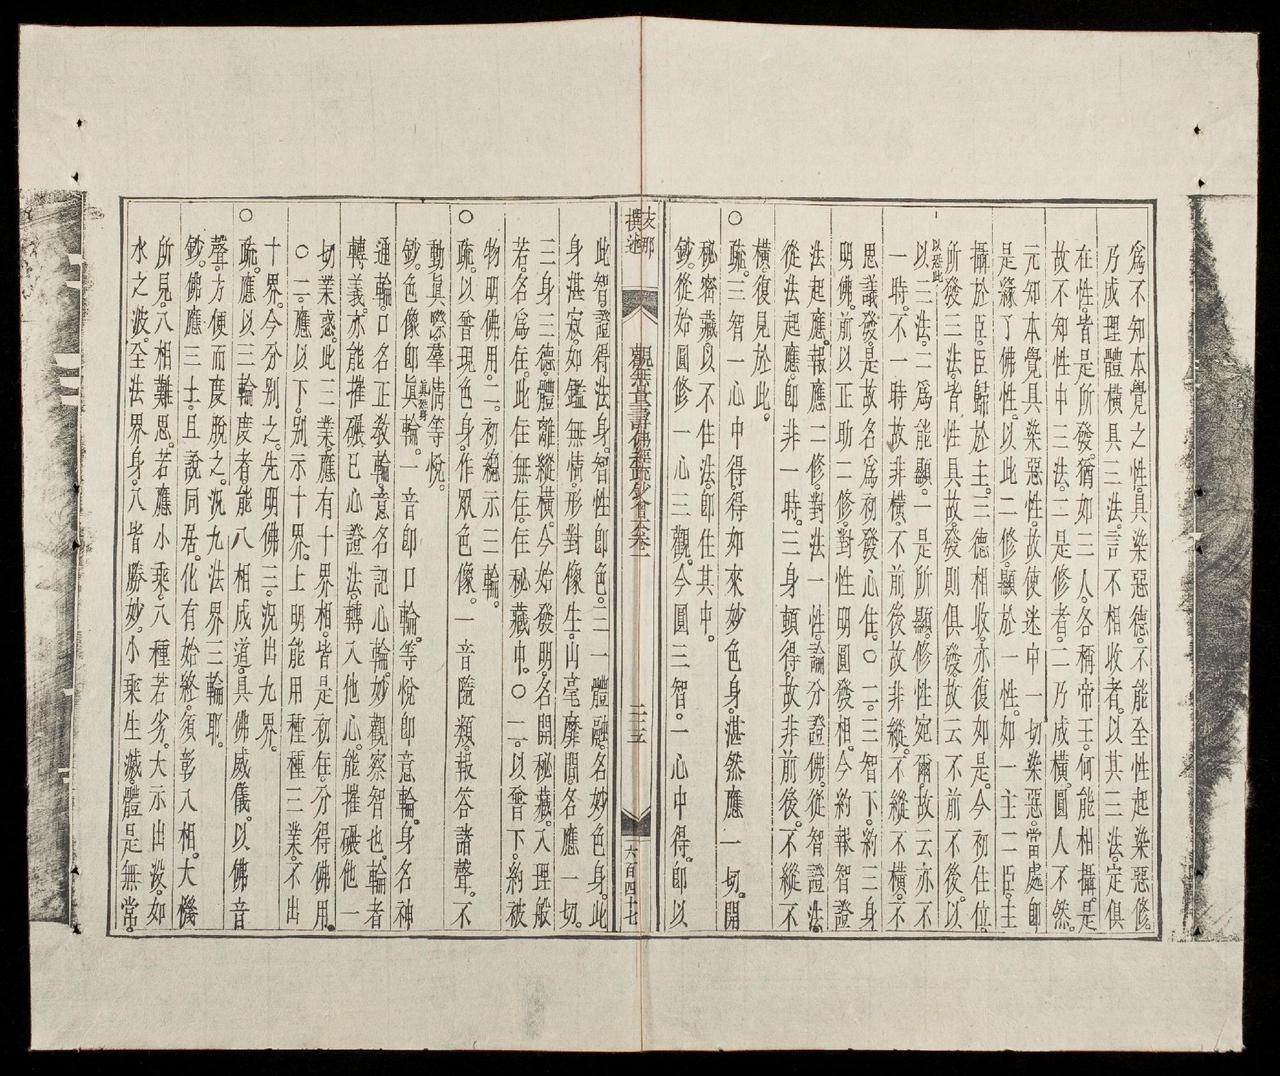 爲不知本覺之性。具染惡德。不能全性起染惡修。
乃成理體橫具三法。言不相收者。以其三法。定俱
在性。皆是所發。猶如三人。各稱帝王。何能相攝。是
故不知性中三法。二是修者。二乃成橫。圓人不然。
元知本覺。具染惡性。故使迷中一切染惡。當處即
是緣了佛性。以此二修。顯於一性。如一主二臣。主
攝於臣。臣歸於主。三德相收。亦復如是。今初住位。
所發三法。皆性具故。發則俱發。故云不前不後。以
以二法。二爲能顯。一是所顯。修性宛爾。故云亦不
一時。不一時故。非橫。不前後故。非縱。不縱不橫。不
思議發。是故名爲初發心住。○二。三智下。約三身
明佛。前以正助二修。對性明圓發相。今約報智證
法起應。報應二修。對法一性。論分證佛。從智證法。
從法起應。即非一時。三身頓得。故非前後。不縱不
橫。復見於此。
○疏。三智一心中得。得如來妙色身。湛然應一切。開
秘密藏。以不住法。即住其中。
鈔。從始圓修一心三觀。今圓三智。一心中得。即以
支那撰述
觀無量壽佛經疏鈔會本卷一
二三五
六百四十七
此智。證得法身。智性即色。二一體融。名妙色身。此
身湛寂。如鑑無情。形對像生。山毫靡間。名應一切。
三身三德。體離縱橫。今始發明。名開秘藏。入理般
若。名爲住。此住無住。住秘藏中。○二。以普下。約被
物明佛用。二。初總示三輪。
○疏。以普現色身。作眾色像。一音隨類。報答諸聲。不
動眞際。羣情等悅。
鈔。色像即眞輪。一音即口輪。等悅即意輪。身名神
通輪。口名正教輪。意名記心輪。妙觀察智也。輪者
轉義。亦能摧碾。已心證法。轉入他心。能摧碾他一
切業惑。此三業。應有十界相。皆是初住。分得佛用。
○二。應以下。別示十界。上明能用種種三業。不出
十界。今分別之。先明佛三。況出九界。
○疏。應以三輪度者。能八相成道。具佛威儀。以佛音
聲。方便而度脫之。況九法界三輪耶。
鈔。佛應三土。且說同居。化有始終。須彰八相。大機
所見。八相難思。若應小乘。八種若劣。大示出沒。如
水之波。全法界身。八皆勝妙。小乘生滅。體是無常。